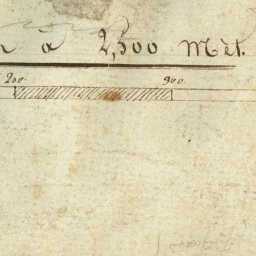 à 2,500 Mèt.
200 900